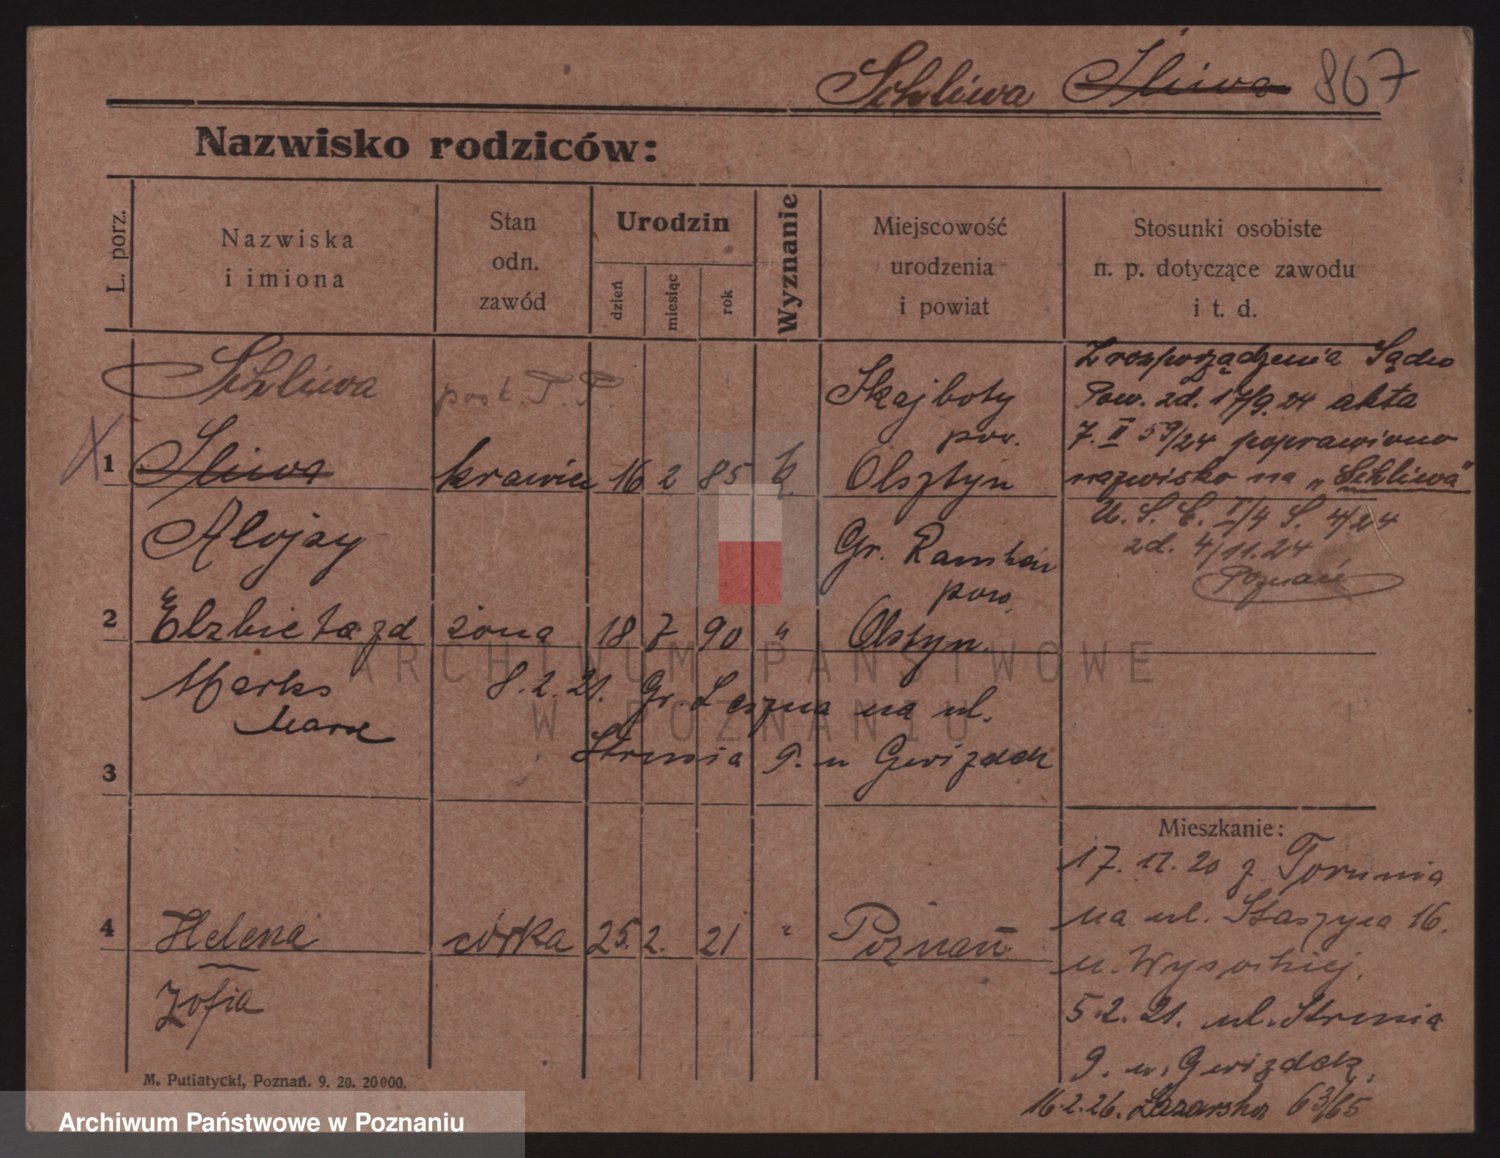 Schliwa Śliwa 867
Nazwisko rodziców:
L. porz.
Nazwiska
i imiona
Stan
odn.
zawód
Urodzin
dzień
miesiąc
rok
Wyznanie
Miejscowość
urodzenia
i powiat
Stosunki osobiste
n. p. dotyczące zawodu
i t. d.
Schliwa post. P. P.
X 1 Śliwa krawiec 16 2 85 k Skajboty
pow.
Olsztyn
Z rozporządzenia Sądu
Pow. zd. 17/9.24 akta
7. II 59/24 poprawiono
nazwisko na „Schliwa"
U. S. C. I/4 S. 4/24
zd. 4/11.24
Poznań
Alojzy
2 Elzbieta zd żona 18 7 90 " Gr.
pow.
Olstyn.
Marks 8.2.21. Gr. Leszna na ul.
Marx
3 Strumia 9. u Gwizdek
4 Helena córka 25. 2. 21 " Poznań
Zofia
Mieszkanie:
17.11.20 z Torunia
na ul. Staszyca 16.
u. Wysockiej.
5.2.21. ul. Strumia
9. u. Gwizdek,
16.2.26. Łazarska 63/65
M. Putiatycki, Poznań. 9. 20. 20000.
ARCHIWUM PAŃSTWOWE
W POZNANIU
Archiwum Państwowe w Poznaniu